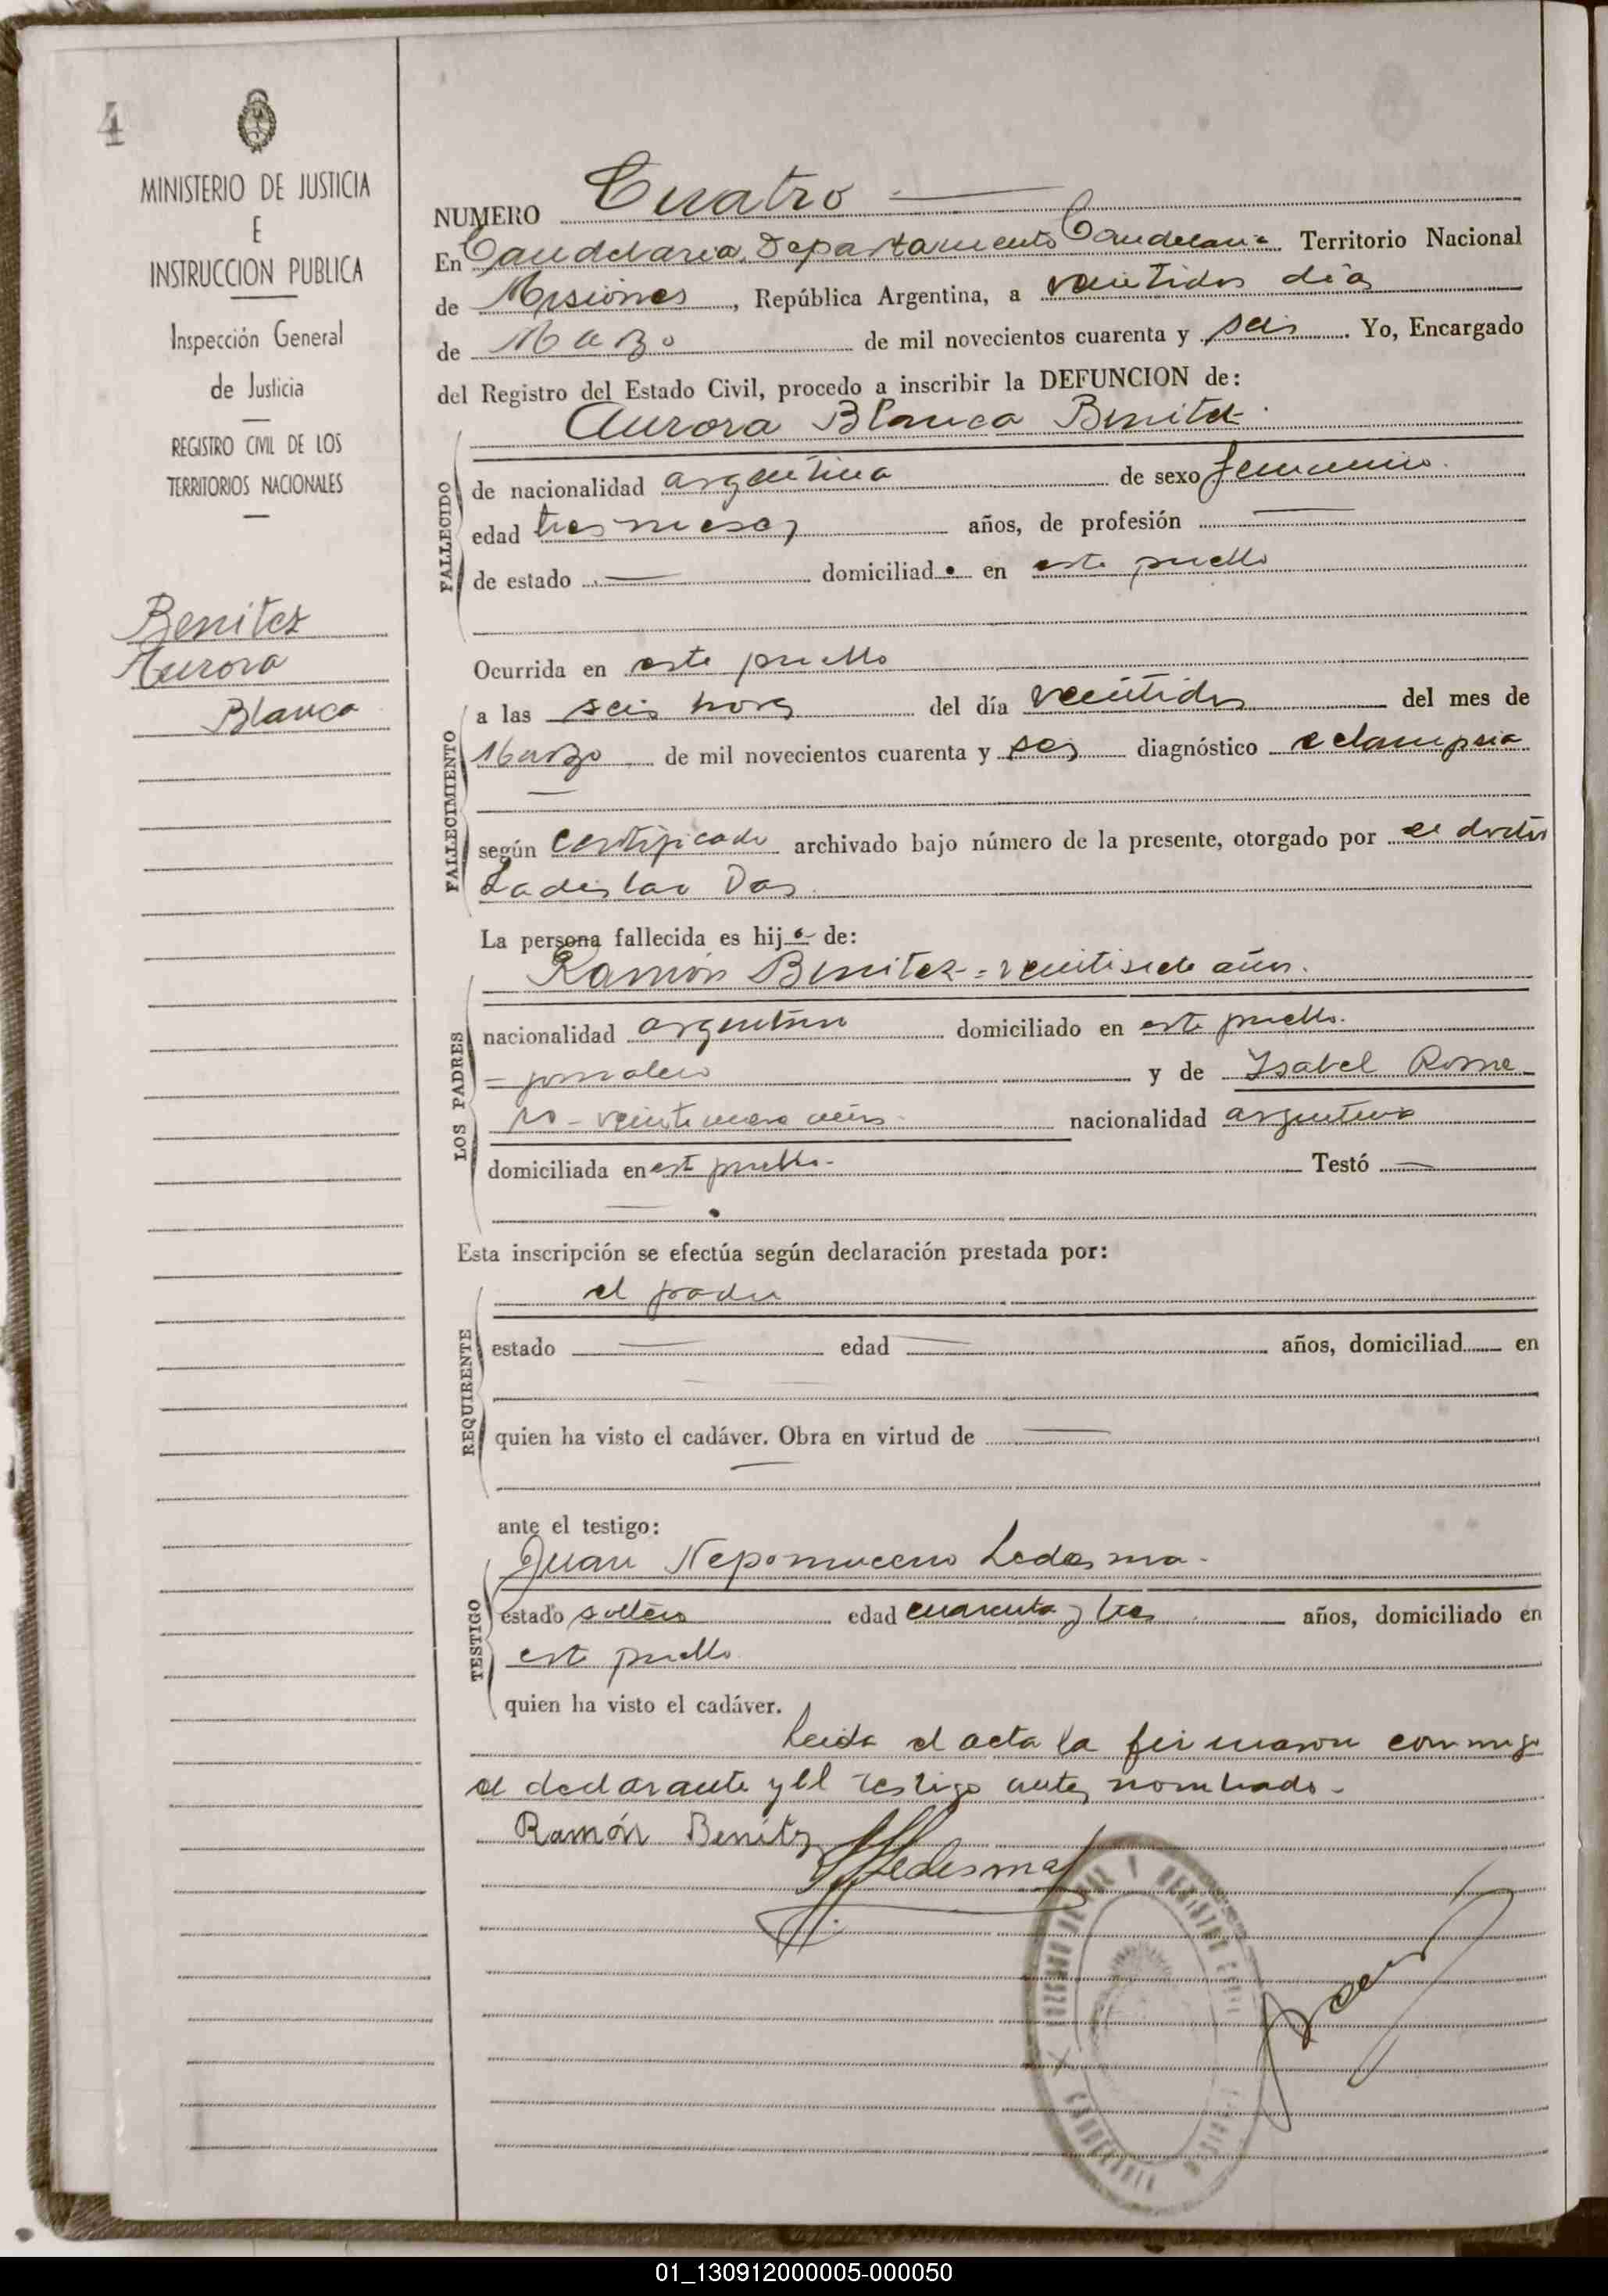 4
MINISTERIO DE JUSTICIA
E
INSTRUCCION PUBLICA
Inspección General
de Justicia
REGISTRO CIVIL DE LOS
TERRITORIOS NACIONALES
Benitez
Aurora
Blanca
NUMERO Cuatro
En Candelaria, Departamento Candelaria Territorio Nacional
de Misiones, República Argentina, a veintidos días
de Marzo de mil novecientos cuarenta y seis. Yo, Encargado
del Registro del Estado Civil, procedo a inscribir la DEFUNCION de:
Aurora Blanca Benitez.
FALLECIDO
de nacionalidad argentina de sexo femenino.
edad tres meses años, de profesión —
de estado — domiciliad en este pueblo
Ocurrida en este pueblo
FALLECIMIENTO
a las seis horas del día veintidos del mes de
Marzo de mil novecientos cuarenta y seis diagnóstico eclampsia
según certificado archivado bajo número de la presente, otorgado por el doctor
Ladislao Das.
La persona fallecida es hija de:
LOS PADRES
Ramón Benitez = veintisiete años.
nacionalidad argentino domiciliado en este pueblo.
= jornalero y de Isabel Rome
ro - años - nacionalidad argentina
domiciliada en este pueblo.- Testó —
Esta inscripción se efectúa según declaración prestada por:
REQUIRENTE
el padre
estado — edad — años, domiciliad en
quien ha visto el cadáver. Obra en virtud de —
ante el testigo:
TESTIGO
Juan Nepomuceno Ledesma -
estado soltero edad cuarenta y tres años, domiciliado en
este pueblo
quien ha visto el cadáver.
Leida el acta la firmaron conmigo
el declarante y el testigo antes nombrado -
Ramón Benitez
Ledesma
REGISTRO CIVIL
01_130912000005-000050